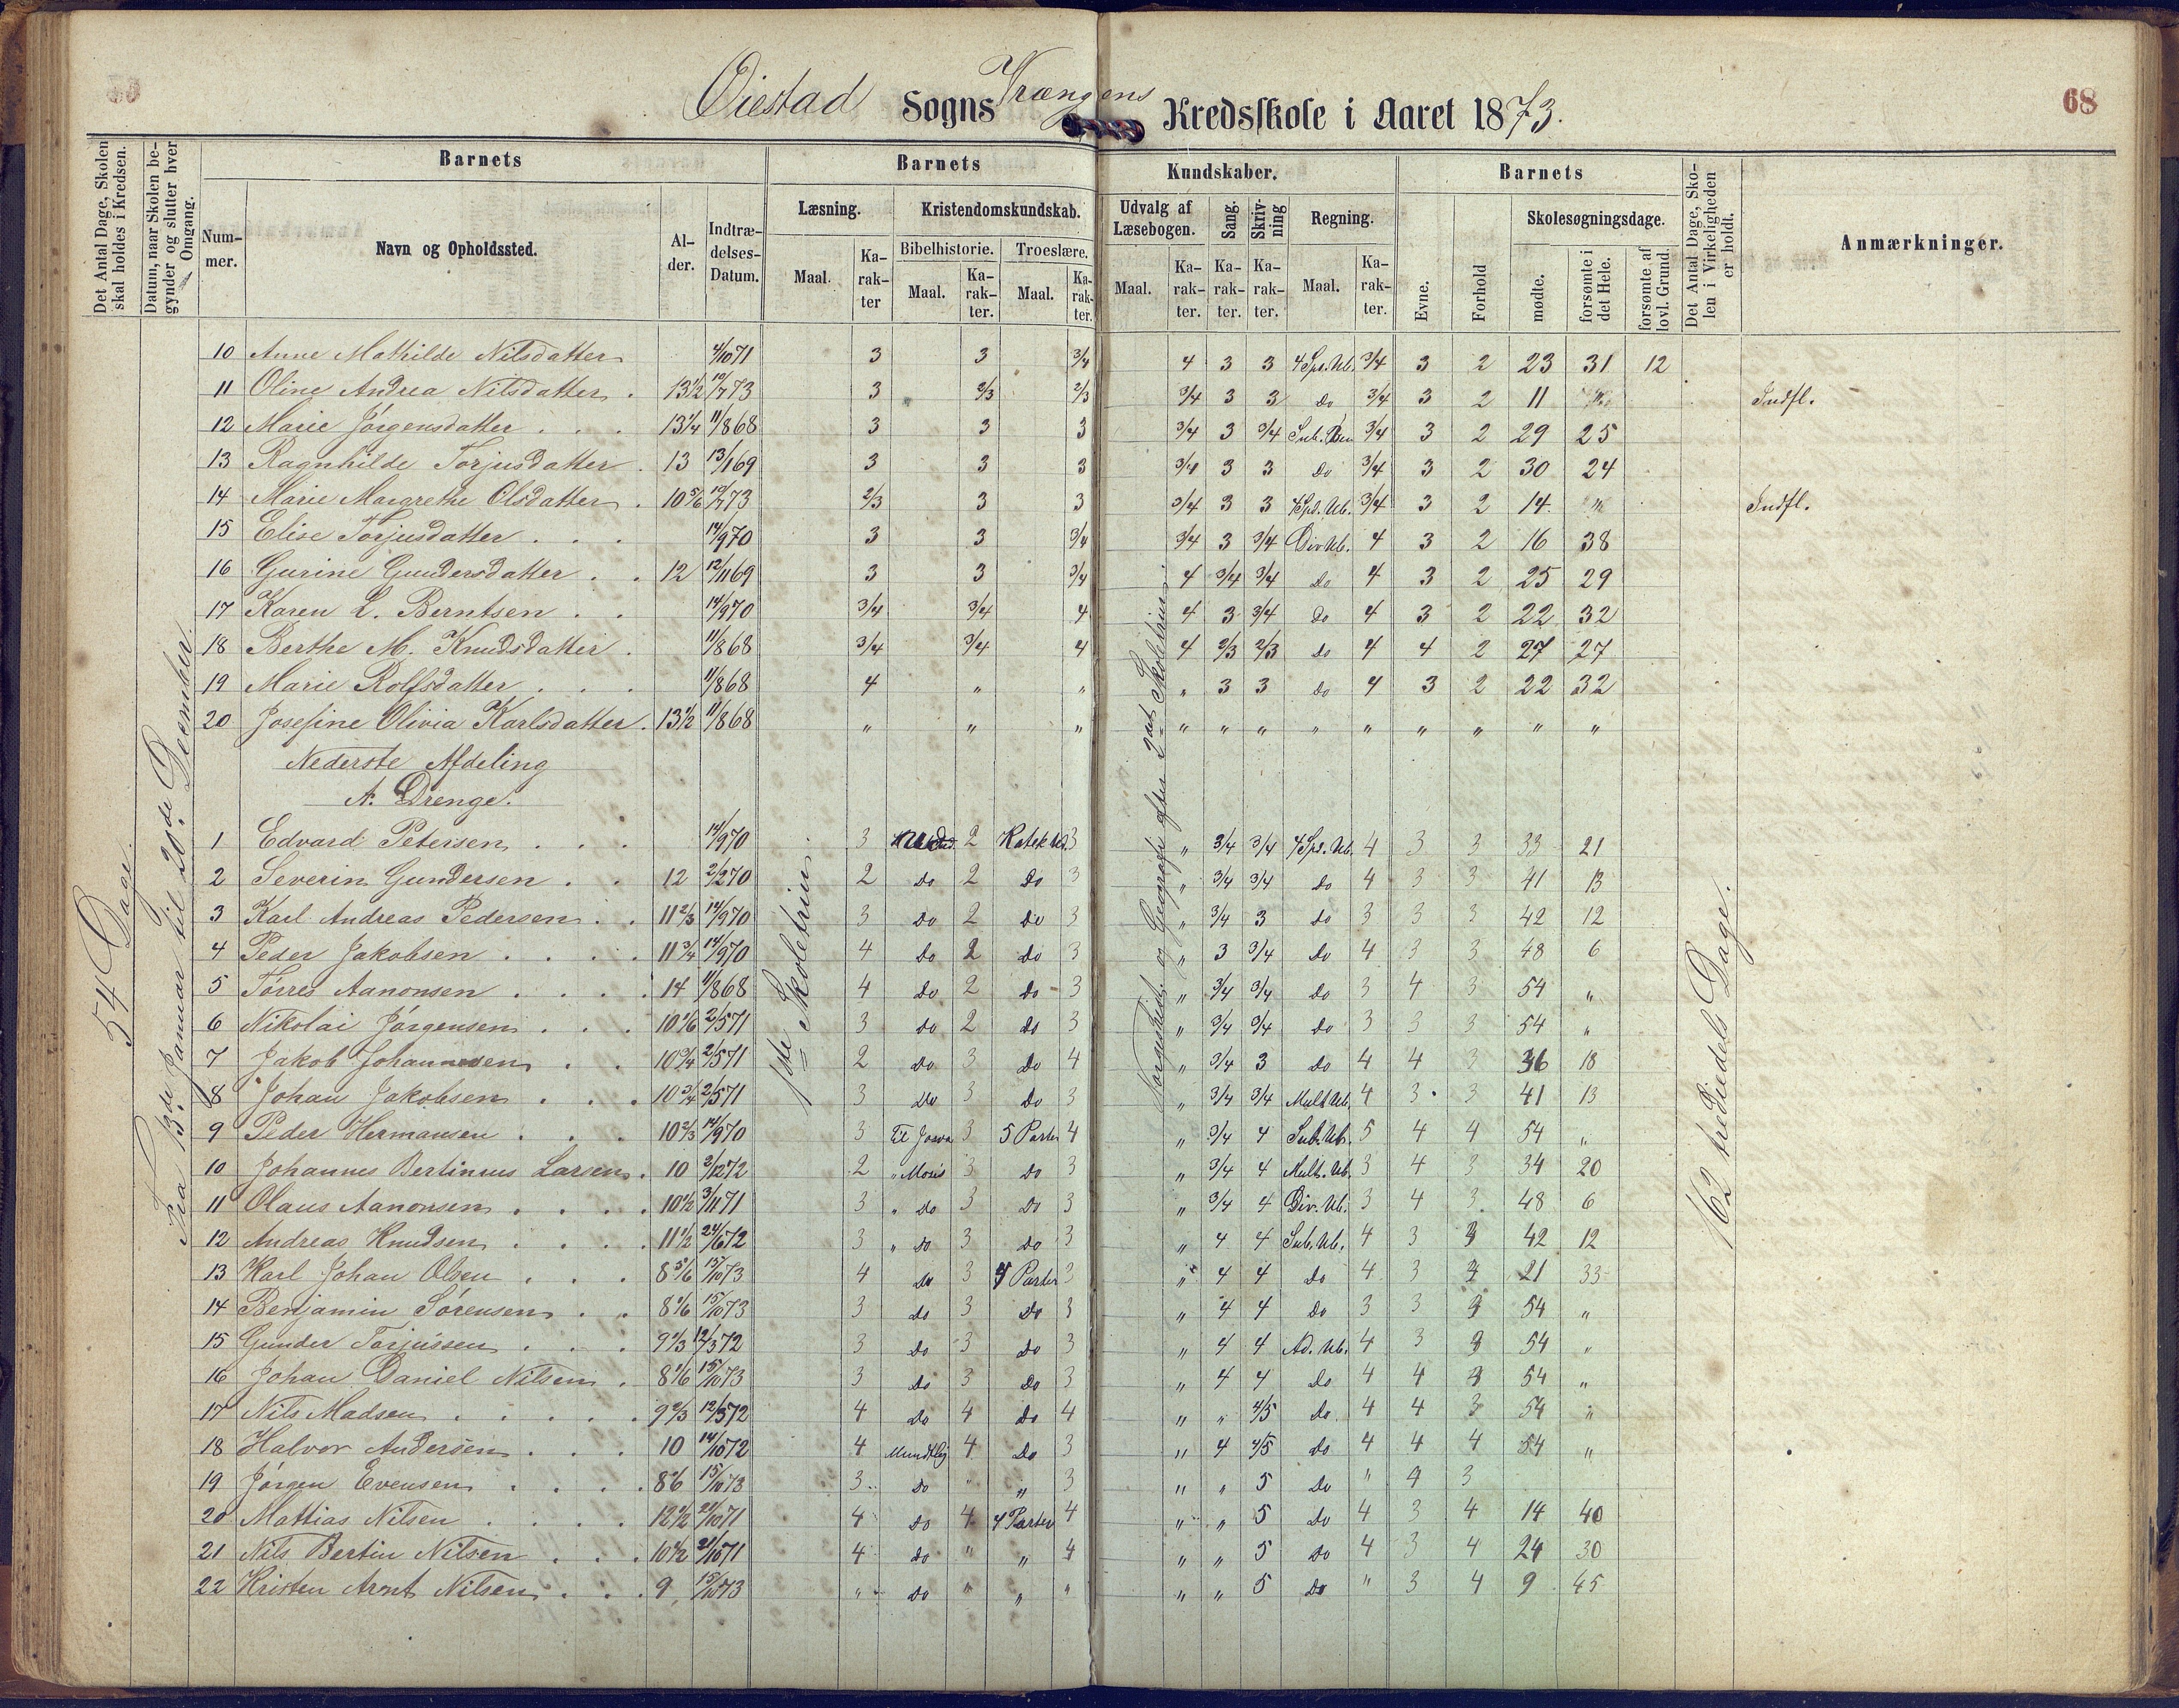 68
Øiestad Sogns Vrængens Kredsskole i Aaret 1873.
Det Antal Dage, Skolen skal holdes i Kredsen.
Datum, naar Skolen begynder og slutter hver Omgang.
Barnets
Barnets
Kundskaber.
Barnets
Det Antal Dage, Skolen i Virkeligheden er holdt.
Anmærkninger.
Nummer.
Navn og Opholdssted.
Alder.
Indtrædelses-Datum.
Læsning.
Kristendomskundskab.
Udvalg af Læsebogen.
Sang.
Skrivning
Regning.
Evne.
Forhold
Skolesøgningsdage.
Bibelhistorie.
Troeslære.
Maal. Karakter Maal. Karakter. Maal. Karakter. Maal. Karakter. Karakter. Karakter. Maal. Karakter.
mødte.
forsømte i det Hele.
forsømte af lovl. Grund.
54 Dage.
Fra 13de Januar til 20de December.
1ste Skoletrin.
Norgeshist. og Geografi efter 2det Skoletrin.
162 trediedels Dage.
10 Anne Mathilde Nilsdatter 4/10 71 3 3 3/4 4 3 3 4 Spe. Ub. 3/4 3 2 23 31 12
11 Oline Andrea Nilsdatter . 13 1/2 10/7 73 3 2/3 2/3 3/4 3 3 Do 3/4 3 2 11 Indfl.
12 Marie Jörgensdatter . . . 13 1/4 11/8 68 3 3 3 3/4 3 3/4 Sub. Ben 3/4 3 2 29 25
13 Ragnhilde Torjusdatter . 13 13/1 69 3 3 3 3/4 3 3 Do 3/4 3 2 30 24
14 Marie Margrethe Olsdatter . 10 5/6 10/7 73 2/3 3 3 3/4 3 3 4 Spe. Ub. 3/4 3 2 14 " Indfl.
15 Elise Torjusdatter . . . 14/9 70 3 3 3/4 3/4 3 3/4 Div Ub. 4 3 2 16 38
16 Gurine Gundersdatter . . 12 12/11 69 3 3 3/4 4 3/4 3/4 Do 4 3 2 25 29
17 Karen L. Berntsen . . 14/9 70 3/4 3/4 4 4 3 3/4 Do 4 3 2 22 32
18 Berthe M. Knudsdatter . 11/8 68 3/4 3/4 4 4 2/3 2/3 Do 4 4 2 27 27
19 Marie Rolfsdatter . . . 11/8 68 4 " " " 3 3 Do 4 3 2 22 32
20 Josefine Olivia Karlsdatter . 13 1/2 11/8 68 " " " " " " " " " " " "
Nederste Afdeling
A. Drenge.
1 Edvard Petersen . . . 14/9 70 3 2 Katek Ud. 3 " 3/4 3/4 4 Spe. Ub. 4 3 3 33 21
2 Severin Gundersen . . 12 2/2 70 2 Do 2 Do 3 " 3/4 3/4 Do 4 3 3 41 13
3 Karl Andreas Pedersen . . 11 2/3 14/9 70 3 Do 2 Do 3 " 3/4 3 Do 3 3 3 42 12
4 Peder Jakobsen . . . . 11 3/4 14/9 70 4 Do 2 Do 3 " 3 3/4 Do 4 3 3 48 6
5 Torres Aanonsen . . . . 14 11/8 68 4 Do 2 Do 3 " 3/4 3/4 Do 3 4 3 54 "
6 Nikolai Jörgensen . . . 10 1/6 2/5 71 3 Do 2 Do 3 " 3/4 3/4 Do 3 3 3 54 "
7 Jakob Johannesen . . 10 3/4 2/5 71 2 Do 3 Do 4 " 3/4 3 Do 4 4 3 36 18
8 Johan Jakobsen . . . 10 3/4 2/5 71 3 Do 3 Do 3 " 3/4 3/4 Mult Ub. 4 3 3 41 13
9 Peder Hermansen . . . 10 2/3 14/9 70 3 Til Josva 3 5 Parter 4 " 3/4 4 Sub. Ub. 5 4 4 54 "
10 Johannes Bertinius Larsen . 10 2/12 72 2 " Moses 3 Do 3 " 3/4 4 Mult. Ub. 3 4 3 34 20
11 Olaus Aanonsen . . . . 10 1/2 3/11 71 3 " Do 3 Do 3 " 3/4 4 Div. Ub. 3 4 3 48 6
12 Andreas Knudsen . . . . 11 1/2 24/6 72 3 " Do 3 Do 3 " 4 4 Sub. Ub. 4 3 3 42 12
13 Karl Johan Olsen . . . 8 5/6 15/10 73 4 Do 3 4 Parter 3 " 4 4 Do 4 3 21 33
14 Benjamin Sörensen . . 8 1/6 15/10 73 3 Do 3 Do 3 " 4 4 Do 3 3 54 "
15 Gunder Torjussen . . . 9 1/3 12/3 72 3 Do 3 Do 3 " 4 4 Ad. Ub. 4 3 54 "
16 Johan Daniel Nilsen . 8 1/6 15/10 73 3 Do 3 Do 3 " 4 4 Do 4 4 54 "
17 Nils Madsen . . . . . 9 2/3 12/3 72 4 Do 4 Do 4 " " 4/5 Do 4 4 3 54 "
18 Halvor Andersen . . . 10 14/10 72 4 Mundtlig 4 Do 3 " 4 4/5 Do 4 4 4 54 "
19 Jörgen Evensen . . . . 15/10 73 3 Do " " 3 " " 5 Do " 4 3
20 Mattias Nilsen . . . . 12 1/2 21/10 71 4 Do 4 4 Parter 4 " " 5 Do 4 3 4 14 40
21 Nils Bertin Nilsen . . . 10 1/2 21/10 71 4 Do " " 4 " " 5 Do 4 3 4 24 30
22 Kristen Arnt Nilsen . . . 9 15/10 73 " Do " " " " " 5 Do " 3 4 9 45